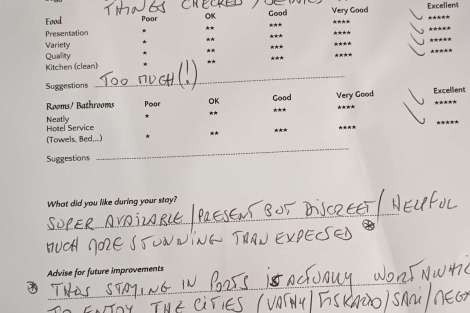 THINGS CHECKED /
Food Poor OK Good Very Good Excellent
Presentation * ** *** **** *****
Variety * ** *** **** *****
Quality * ** *** **** *****
Kitchen (clean) * ** *** **** *****
Suggestions TOO MUCH (!)
Rooms/ Bathrooms Poor OK Good Very Good Excellent
Neatly * ** *** **** *****
Hotel Service
(Towels, Bed,..) * ** *** **** *****
Suggestions
What did you like during your stay?
SUPER AVAILABLE / PRESENT BUT DISCREET / HELPFUL
MUCH MORE STUNNING THAN EXPECTED ⊛
Advise for future improvements
⊛ THIS STAYING IN PORTS IS ACTUALLY WORTH
TO ENJOY THE CITIES (VATHY / FISKADO / SAMI /